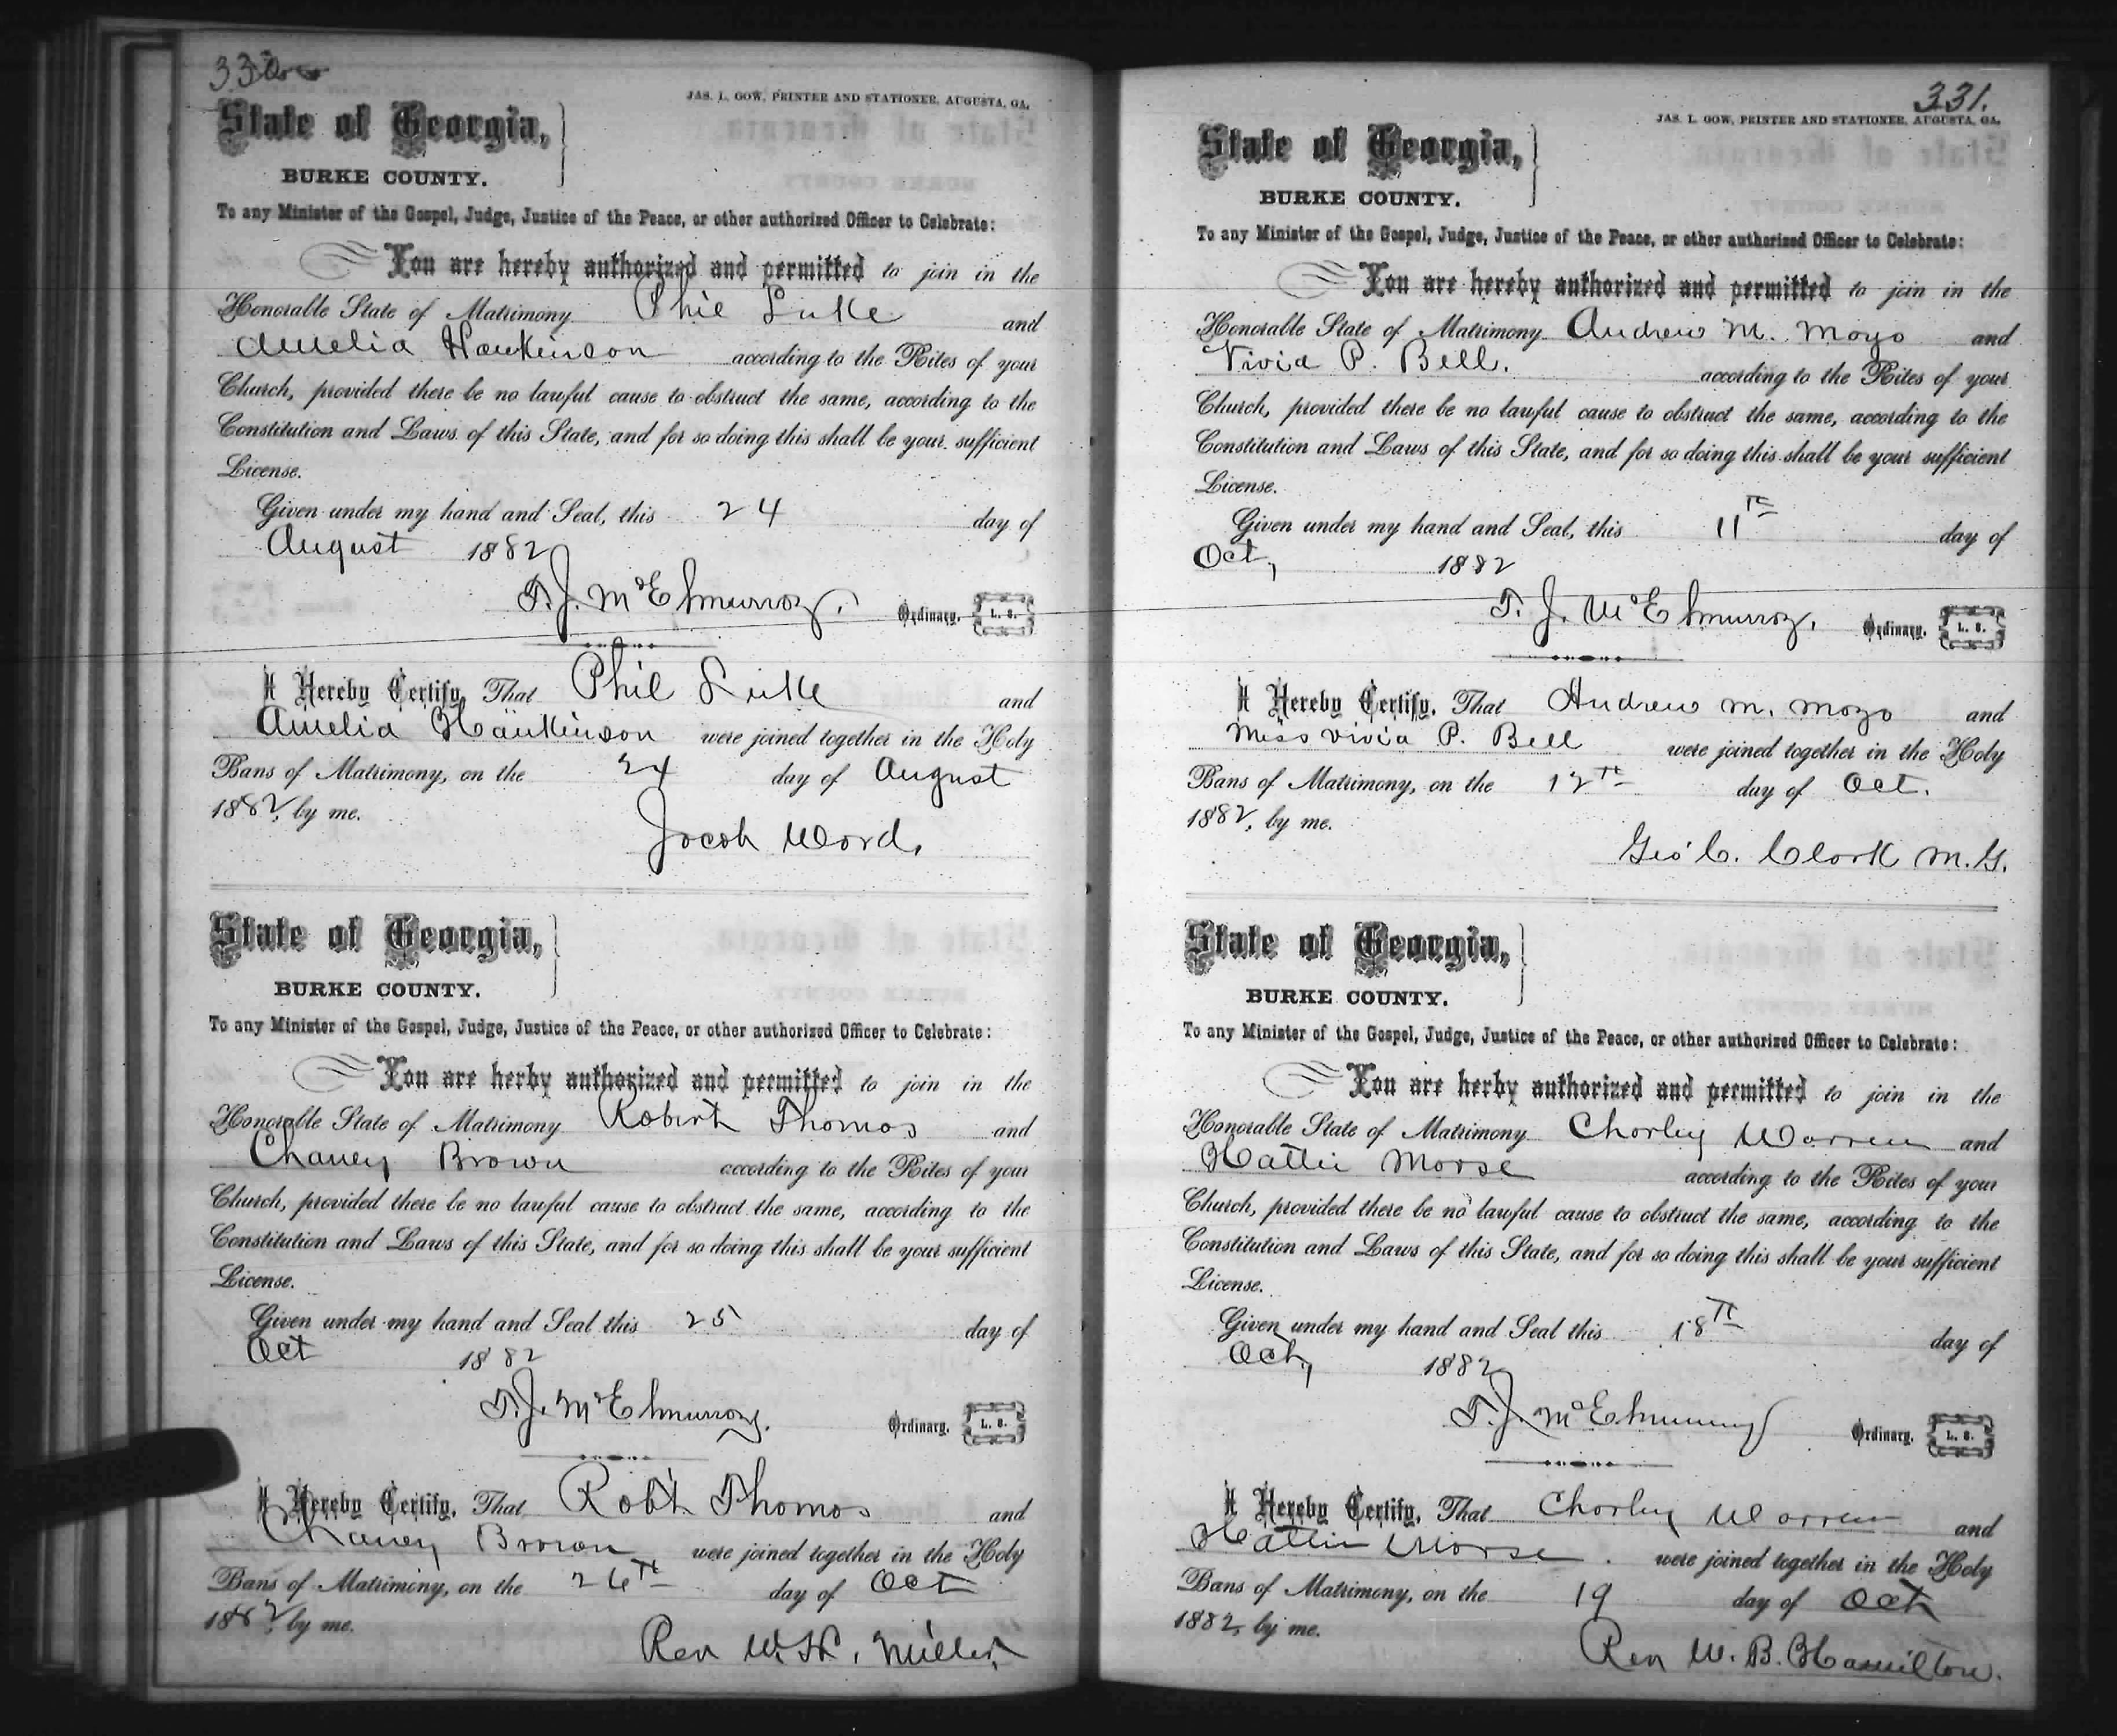 330
JAS. L. GOW, PRINTER AND STATIONER, AUGUSTA, GA.
State of Georgia,
BURKE COUNTY.
To any Minister of the Gospel, Judge, Justice of the Peace, or other authorized Officer to Celebrate:
You are hereby authorized and permitted to join in the
Honorable State of Matrimony Phil Luke and
Amelia Hankinson according to the Rites of your
Church, provided there be no lawful cause to obstruct the same, according to the
Constitution and Laws of this State, and for so doing this shall be your sufficient
License.
Given under my hand and Seal, this 24 day of
August 1882
T. J. McElmurray. Ordinary. L. S.
I Hereby Certify, That Phil Luke and
Amelia Hankinson were joined together in the Holy
Bans of Matrimony, on the 24 day of August
1882, by me.
Jacob Word.
State of Georgia,
BURKE COUNTY.
To any Minister of the Gospel, Judge, Justice of the Peace, or other authorized Officer to Celebrate:
You are herby authorized and permitted to join in the
Honorable State of Matrimony Robert Thomas and
Chaney Brown according to the Rites of your
Church, provided there be no lawful cause to obstruct the same, according to the
Constitution and Laws of this State, and for so doing this shall be your sufficient
License.
Given under my hand and Seal this 25 day of
Oct 1882
T. J. McElmurray. Ordinary. L. S.
I Hereby Certify, That Robt Thomas and
Chaney Brown were joined together in the Holy
Bans of Matrimony, on the 26th day of Oct
1882, by me.
Rev W. H. Miller
331.
JAS. L. GOW, PRINTER AND STATIONER, AUGUSTA, GA.
State of Georgia,
BURKE COUNTY.
To any Minister of the Gospel, Judge, Justice of the Peace, or other authorized Officer to Celebrate:
You are hereby authorized and permitted to join in the
Honorable State of Matrimony Andrew M. Moyo and
Vivia P. Bell. according to the Rites of your
Church, provided there be no lawful cause to obstruct the same, according to the
Constitution and Laws of this State, and for so doing this shall be your sufficient
License.
Given under my hand and Seal, this 11th day of
Oct, 1882
T. J. McElmurray. Ordinary. L. S.
I Hereby Certify, That Andrew M. Mozo and
Miss Vivia P. Bell were joined together in the Holy
Bans of Matrimony, on the 12th day of Oct.
1882, by me.
Geo C. Clark M. G.
State of Georgia,
BURKE COUNTY.
To any Minister of the Gospel, Judge, Justice of the Peace, or other authorized Officer to Celebrate:
You are herby authorized and permitted to join in the
Honorable State of Matrimony Charley Warren and
Hattie Morse according to the Rites of your
Church, provided there be no lawful cause to obstruct the same, according to the
Constitution and Laws of this State, and for so doing this shall be your sufficient
License.
Given under my hand and Seal this 18th day of
Oct, 1882
T. J. McElmurray Ordinary. L. S.
I Hereby Certify, That Charley Warren and
Hattie Morse. were joined together in the Holy
Bans of Matrimony, on the 19 day of Oct
1882, by me.
Rev W. B. Hamilton.